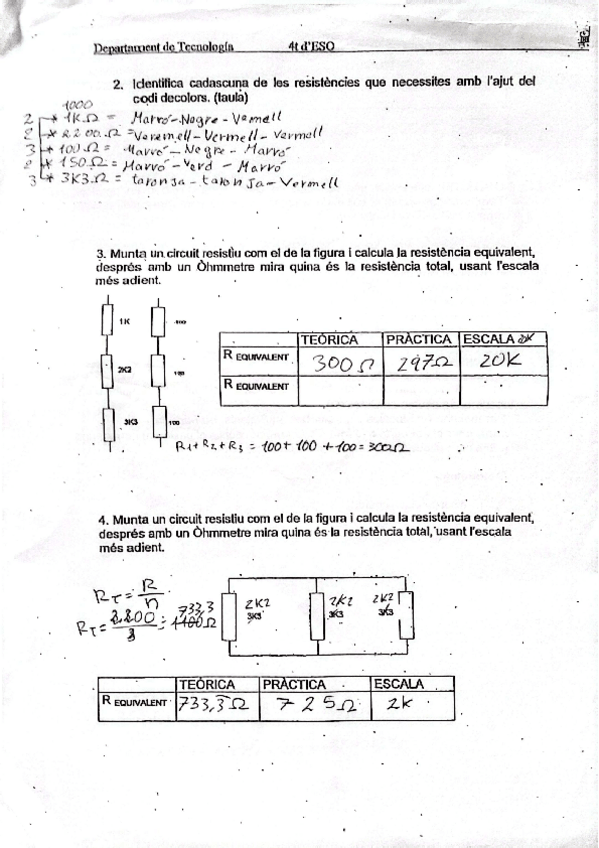 Departament de Tecnología 4t d'ESO
2. Identifica cadascuna de les resistències que necessites amb l'ajut del
codi decolors. (taula)
1000
2 * 1KΩ = Marró-Negre-Vemell
2 * 2200Ω = Veremell-Vermell-Vermoll
3 * 100Ω = Marró-Negre-Marró
2 * 150Ω = Marró-Verd-Marró
3 * 3K3Ω = taronja-taronja-Vermell
3. Munta un circuit resistiu com el de la figura i calcula la resistència equivalent,
després amb un Òhmmetre mira quina és la resistència total, usant l'escala
més adient.
1K 100
TEÓRICA PRÀCTICA ESCALA 2K
R EQUIVALENT 300Ω 297Ω 20K
2K2 100
R EQUIVALENT
3K3 100
R1+R2+R3 = 100+100+100=300Ω
4. Munta un circuit resistiu com el de la figura i calcula la resistència equivalent,
després amb un Òhmmetre mira quina és la resistència total, usant l'escala
més adient.
RT = R/n
2K2 2K2 2K2
RT = 2.200/3 = 733,3 1100Ω
3K3 3K3 3K3
TEÓRICA PRÀCTICA ESCALA
R EQUIVALENT 733,3Ω 725Ω 2K